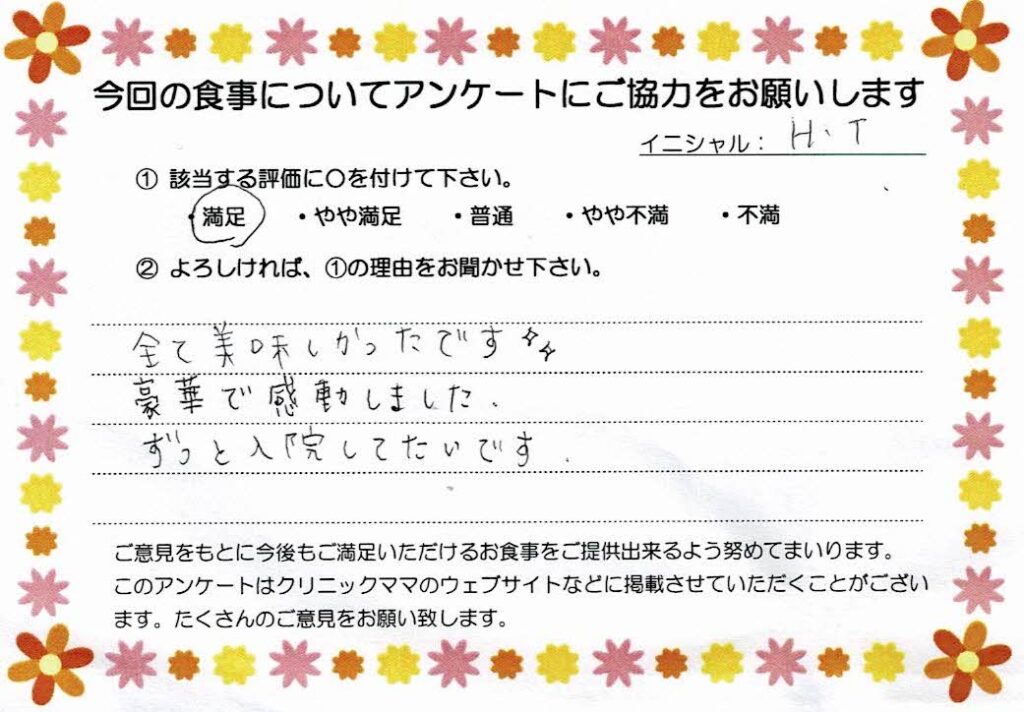 今回の食事についてアンケートにご協力をお願いします
イニシャル： H.T
① 該当する評価に〇を付けて下さい。
・満足 ・やや満足 ・普通 ・やや不満 ・不満
② よろしければ、①の理由をお聞かせ下さい。
全て美味しかったです
豪華で感動しました.
ずっと入院してたいです.
ご意見をもとに今後もご満足いただけるお食事をご提供出来るよう努めてまいります。
このアンケートはクリニックママのウェブサイトなどに掲載させていただくことがござい
ます。たくさんのご意見をお願い致します。